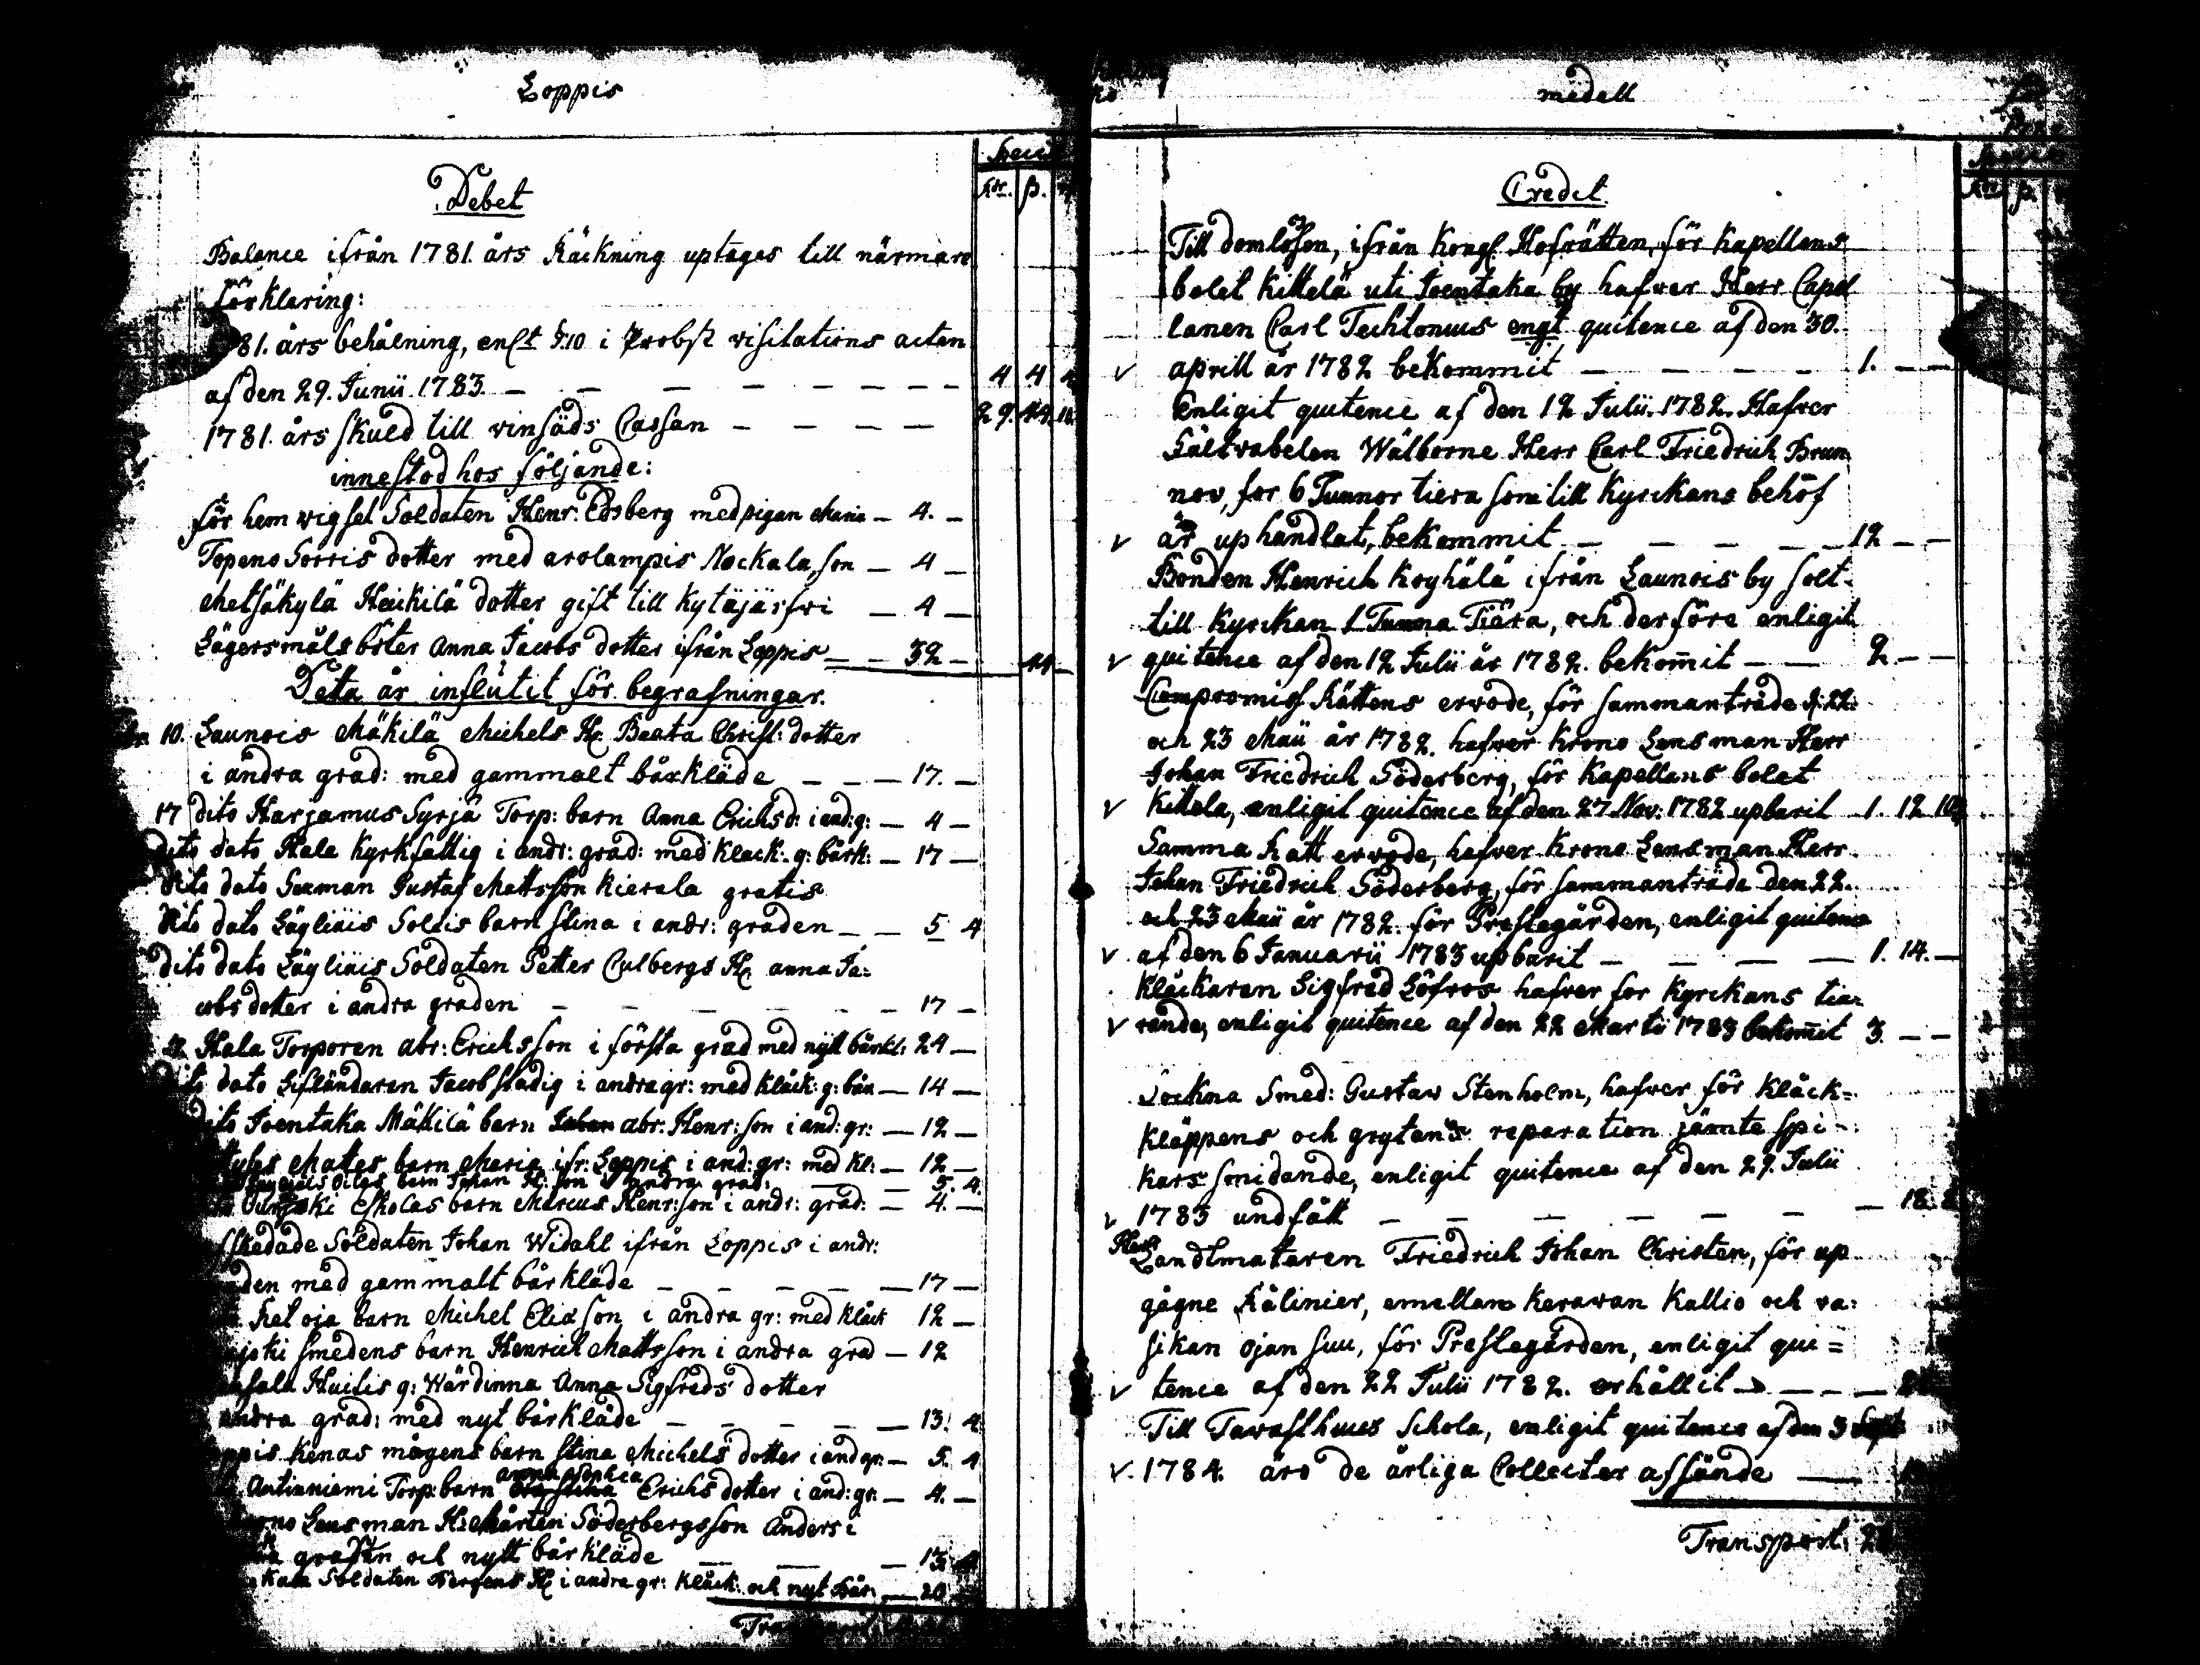 Loppis
Debet
Balance ifrån 1781. års Räckning uptages till närmare
förklaring:
81. års behålning, enl:t §.10 i Probst visitations acten
af den 29. Junii 1783. — — — — — — — 4 4
1781. års skuld till vinsäds Cassan — — — — 29.
innestod hos följande:
för hem wigsel Soldaten Henr: Edsberg med pigan Maria — 4. —
Topeno Sorris dotter med arolampis Nockala son — 4 —
Metsäkylä Heickilä dotter gift till Kytäjärfvi — 4 —
Lägersmåls böter Anna Jacobs dotter ifrån Loppis — — 32 —
Deta är influtit för begrafningar.
10. Launois Mäkilä Michels H: Beata Christ: dotter
i andra grad: med gammalt bårkläde — — — 17. —
17 dito Harjamus Syrjä Torp: barn Anna Erichsd: i and: g: — 4 —
dito dato Hala kyrkfattig i andr: grad: med klack. g: bårk: — 17 —
dito dato Sexman Gustaf Mattsson Kierala gratis
dito dato Läyliäis Soldis barn Stina i andr: graden — — 5 4
dito dato Läyliäis Soldaten Petter Culbergs H: anna Ja=
cobs dotter i andra graden — — — — — 17 —
Hala Torporen abr: Erichsson i första grad med nytt bårkl: 24 —
dito dato Lifländaren Jacob stadig i andra gr: med klåck: g: bår — 14 —
dito Joentaka Mäkilä barn abr: Henr: son i and: gr: — 12 —
Mattes barn Maria ifr: Loppis i and: gr: med kl: — 12 —
barn Johan H: son i andra grad: — — 5. 4.
Eskolas barn Marcus Henr: son i andr: grad: — 4. —
Soldaten Johan Widahl ifrån Loppis i andr:
den med gammalt bårkläde — — — — — 17 —
barn Michel Eliæ son i andra gr: med klåck 12 —
joki smedens barn Henrich Matts son i andra grad — 12
Huitis g: Wärdinna Anna Sigfreds dotter
andra grad: med nyt bårkläde — — — — — 13. 4
Loppis Kenas mågens barn Stina Michels dotter i and gr: — 5. 4
anna Sophia
Antinniemi Torp: barn Erichs dotter i and: gr: — 4. —
Lensman H: Mårten Söderbergs son Anders i
graden och nytt bårkläde — — — 13 4
Soldaten H: i andra gr: klåck: och nyt bår: — 20
medell
Credit
Till domlösen, ifrån Kongl. Hofrätten, för Kapellans
bolet Kittelä uti Joentaka by hafver Herr Capel
lanen Carl Techtonius engt. quitence af den 30.
v aprill år 1782 bekommit — — — — 1. — —
Enligit quitence af den 12 Julii. 1782. Hafver
Fältwabelen Wälborne Herr Carl Friedrich Brun
nov, for 6 Tunnor tiera som till Kyrckans behöf
v är uphandlat, bekommit — — — — — 12 — —
Bonden Henrich Koyhälä ifrån Launois by solt
till Kyrckan 1 Tunna Tiära, och derföre enligit
v quitence af den 12 Julii år 1782. bekom̄it — — 2 — —
Compromiss Rättens ervode, för sammanträde d: 22:
och 23 Maii år 1782. hafver Krono Lensman Herr
Johan Friedrich Söderberg, för Kapellans bolet
v Kittela, enligit quitence af den 27 Nov: 1782 upburit 1. 12 10
Samma Rätt ervode, hafver Krono Lensman Herr
Johan Friedrich Söderberg, för sammanträde den 22.
och 23 Maii år 1782. för Prestegården, enligit quitence
v af den 6 Januarii 1783 upburit — — — — 1. 14. —
Klåckaren Sigfred Löfros hafver for Kyrckans tiæ
v rande, enligit quitence af den 22 Martii 1783 bekom̄it 3. — —
Sockna Smed: Gustaw Stenholm, hafver för Klåck=
kläppens och grytans reparation jämte spi-
kars smidande, enligit quitence af den 29. Julii
v 1783 undfått — — — — — — 18.
Herr
Landtmätaren Friedrich Johan Christen, för up
gågne Rålinier, emellan Karawan Kallio och va=
sikan ojan suu, för Prestegården, enligit qui=
v tence af den 22 Julii 1782. erhållit — — — —
Till Tavasthuus Schola, enligit quitence af den 3 Sept
v. 1784. äro de årliga Collecter afsände —
Transport.